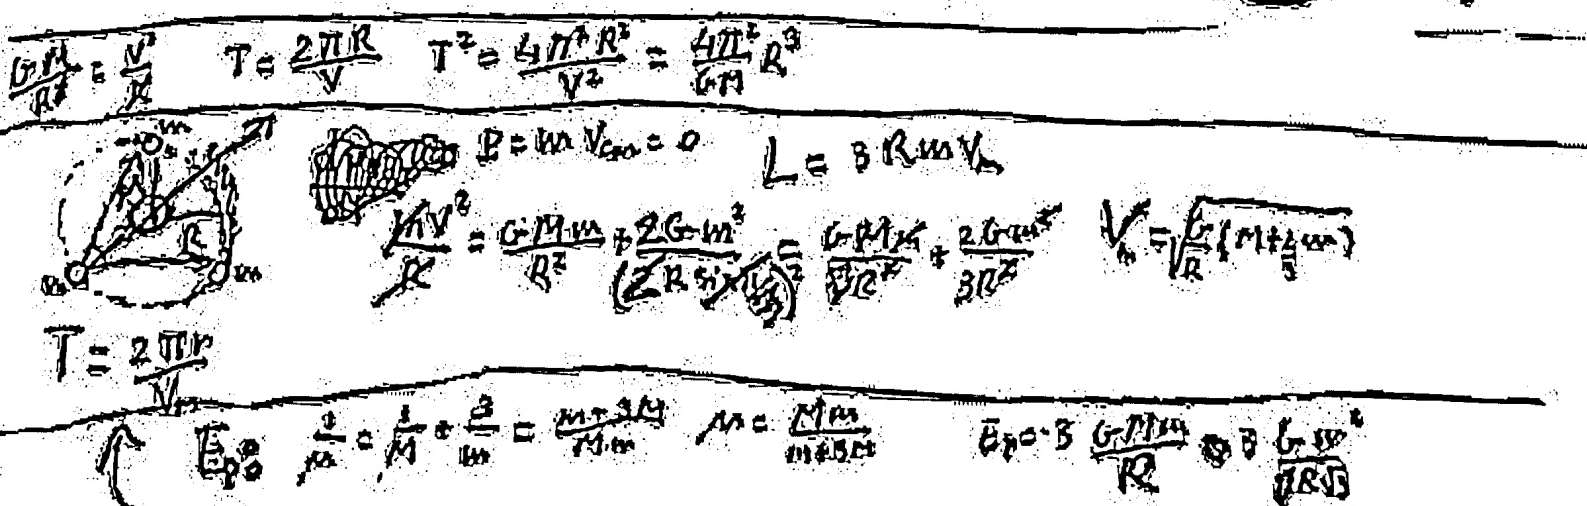 GM/R² = V²/R T = 2πR/V T² = 4π²R²/V² = 4π²/GM R³
m
P = m Vcm = 0 L = 3 R m Vm
R
mV²/R = GMm/R² + 2Gm²/(2R sin)² = GMm/R² + 2Gm²/3R² Vm = √(G/R (M + m))
m m
T = 2πr/Vm
Ep: 1/μ = 1/M + 3/m = m+3M/M·m μ = Mm/m+3M Ep = -3 GMm/R 3 Gm²/R√3